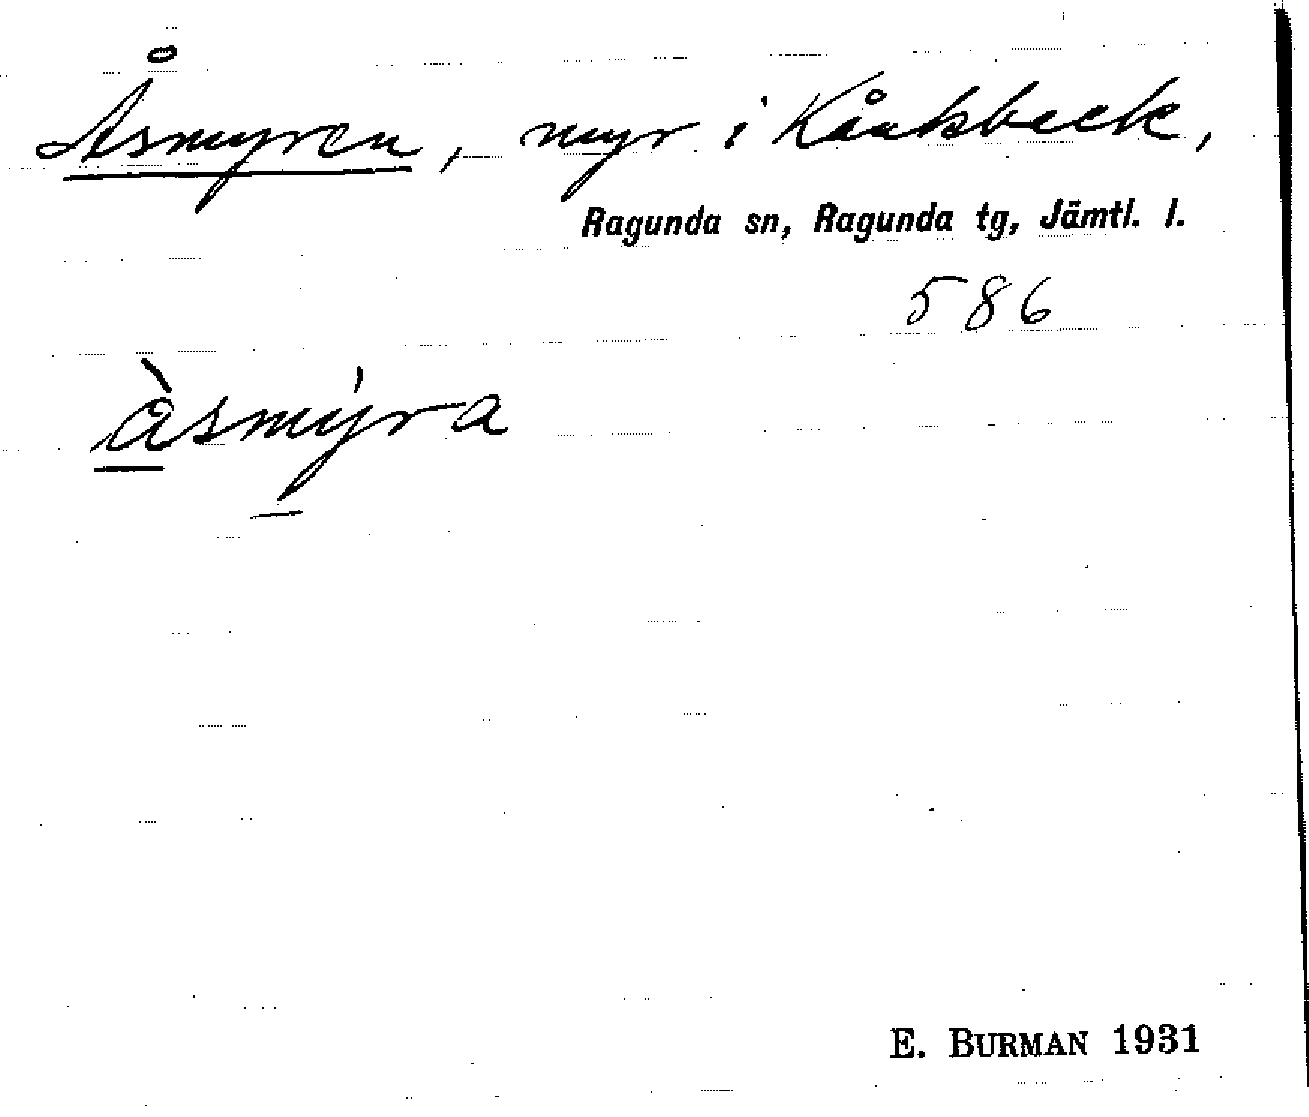 Åsmyren, myr i Kånkback,
Ragunda sn, Ragunda tg, Jämtl. l.
586
å̀smýra
E. BURMAN 1931